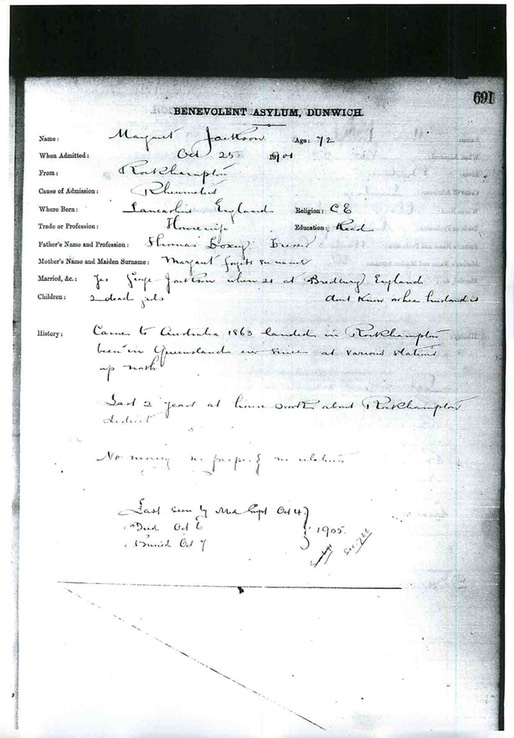 691
BENEVOLENT ASYLUM, DUNWICH.
Name: Margaret Jackson Age: 72
When Admitted: Oct 25 1901
From: Rockhampton
Cause of Admission:
Where Born: England Religion: C E
Trade or Profession: Education: Read
Father's Name and Profession: Thomas
Mother's Name and Maiden Surname: Margaret forgets surname
Married, &c.: Yes George Jackson when 21 at Bredbury England
Children: 2 dead girls dont know where husband is
History: Came to Australia 1863 landed in Rockhampton
been in Queensland ever since at various stations
up north
Last 2 years at house work about Rockhampton
district
No money no property no relations
Last seen by Med Supt Oct 4
Died Oct 6 1905
Buried Oct 7